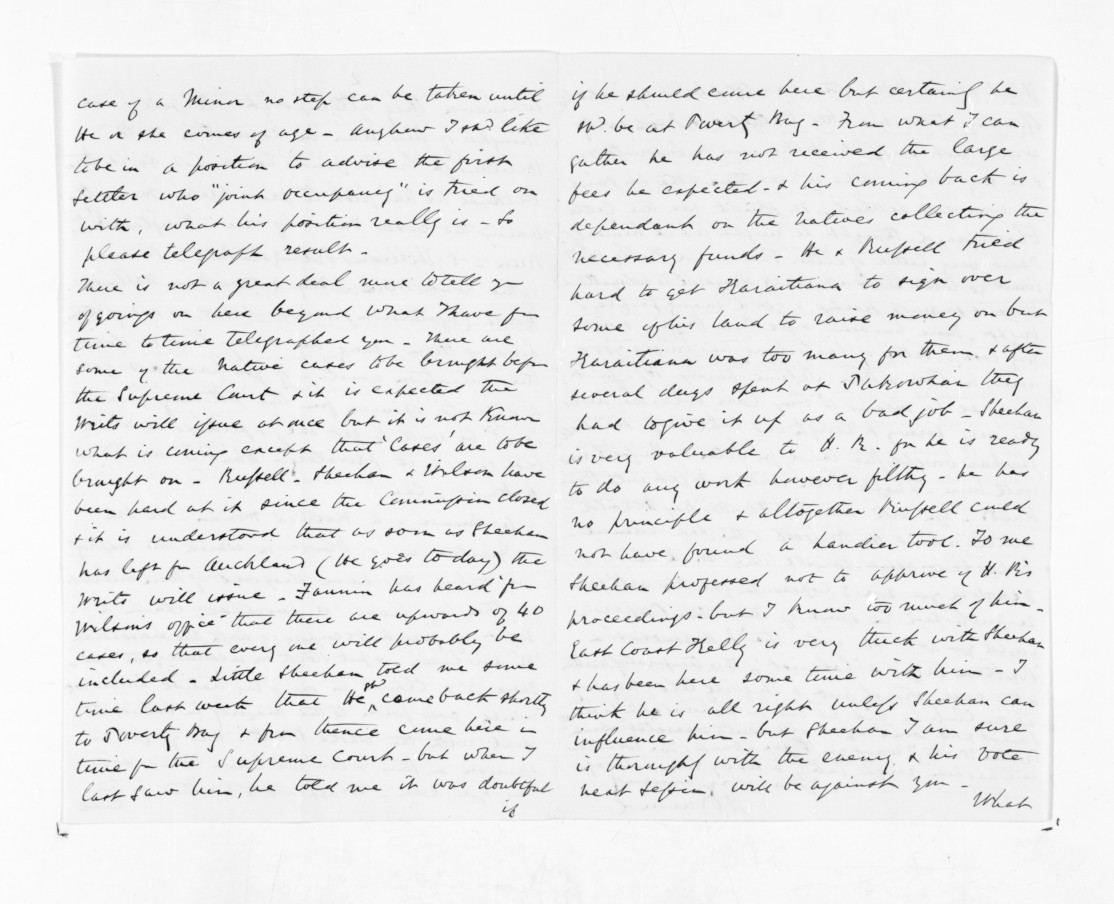 case of a Minor no step can be taken until
He or she comes of age - anyhow I shd. like
to be in a position to advise the first
settler who "joint occupancy" is tried on
with, what his position really is - So
please telegraph result -
There is not a great deal more to tell you
of goings on here beyond what I have from
time to time telegraphed you - There are
some of the Native cases to be brought before
the Supreme Court & it is expected the
Writs will issue at once but it is not known
what is coming except that 'Cases' are to be
brought on - Russell - Sheehan & Wilson have
been hard at it since the Commission closed
& it is understood that as soon as Sheehan
has left for Auckland (He goes to day) the
Writs will issue - Fannin has heard from
Wilson's office that there are upwards of 40
cases, so that every one will probably be
included - Little Sheehan told me some
time last week that He shd. come back shortly
to Poverty Bay & from thence come here in
time for the Supreme Court - but when I
last saw him, he told me it was doubtful
if
if he should come here but certainly he
shd. be at Poverty Bay - From what I can
gather he has not received the large
fees he expected - & his coming back is
dependant on the Natives collecting the
necessary funds - He & Russell tried
hard to get Karaitiana to sign over
some of his land to raise money on but
Karaitiana was too many for them & after
several days spent at Pakowhai they
had to give it up as a bad job - Sheehan
is very valuable to H. R. for he is ready
to do any work however filthy - he has
no principle & altogether Russell could
not have found a handier tool. To me
Sheehan professed not to approve of H. R's
proceedings - but I know too much of him -
East Coast Kelly is very thick with Sheehan
& has been here some time with him - I
think he is all right unless Sheehan can
influence him - but Sheehan I am sure
is thoroughly with the enemy & his vote
next Session, will be against you -
What